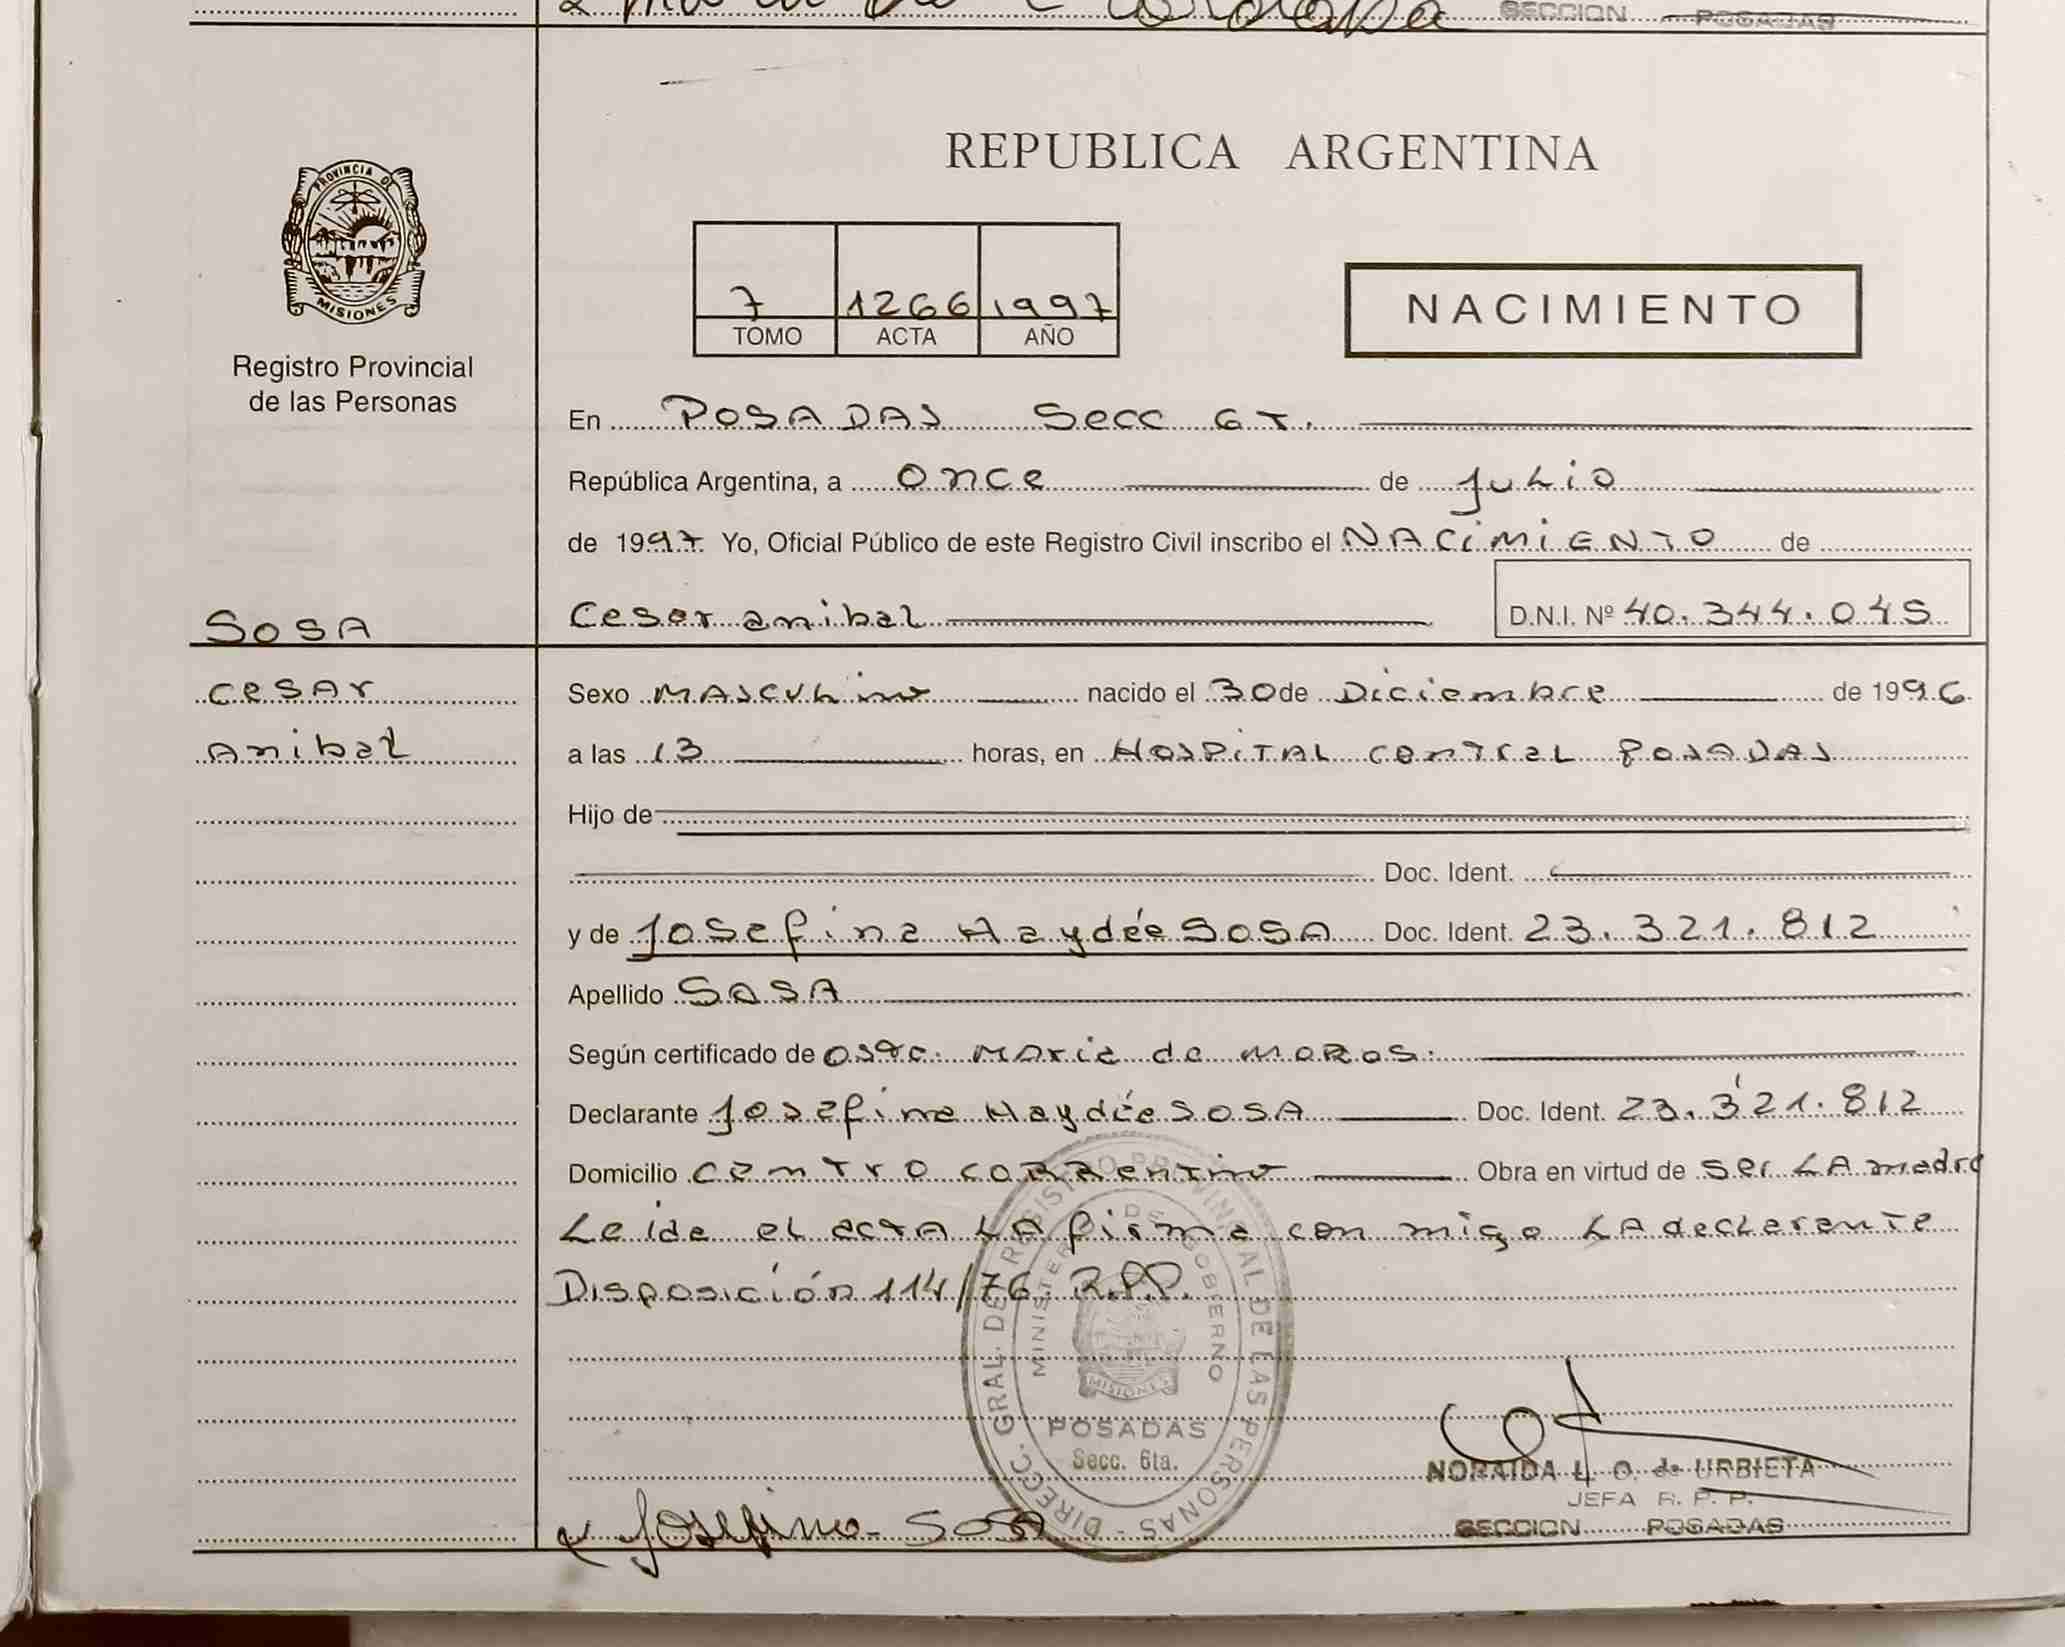 SECCION POSADAS
PROVINCIA DE
MISIONES
Registro Provincial
de las Personas
SOSA
Cesar
Anibal
REPUBLICA ARGENTINA
7 1266 1997
TOMO ACTA AÑO
NACIMIENTO
En POSADAS Secc 6T.
República Argentina, a once de julio
de 1997. Yo, Oficial Público de este Registro Civil inscribo el NACIMIENTO de
Cesar anibal D.N.I. Nº 40.344.045
Sexo MASCULino nacido el 30 de Diciembre de 1996
a las 13 horas, en HOSPITAL central POSADAS
Hijo de
Doc. Ident.
y de Josefina Haydée SOSA Doc. Ident. 23.321.812
Apellido SOSA
Según certificado de Maria de
Declarante Josefina Haydée SOSA Doc. Ident. 23.321.812
Domicilio centro correntino Obra en virtud de ser LA madre
Leida el acta LA firma con migo LA declarante
Disposición 114/76 R.P.P.
DIRECC. GRAL. DE REGISTRO PROVINCIAL DE LAS PERSONAS
MINISTERIO DE GOBIERNO
MISIONES
POSADAS
Secc. 6ta.
NORAIDA L. O. de URBIETA
JEFA R. P. P.
SECCION POSADAS
Josefina SOSA